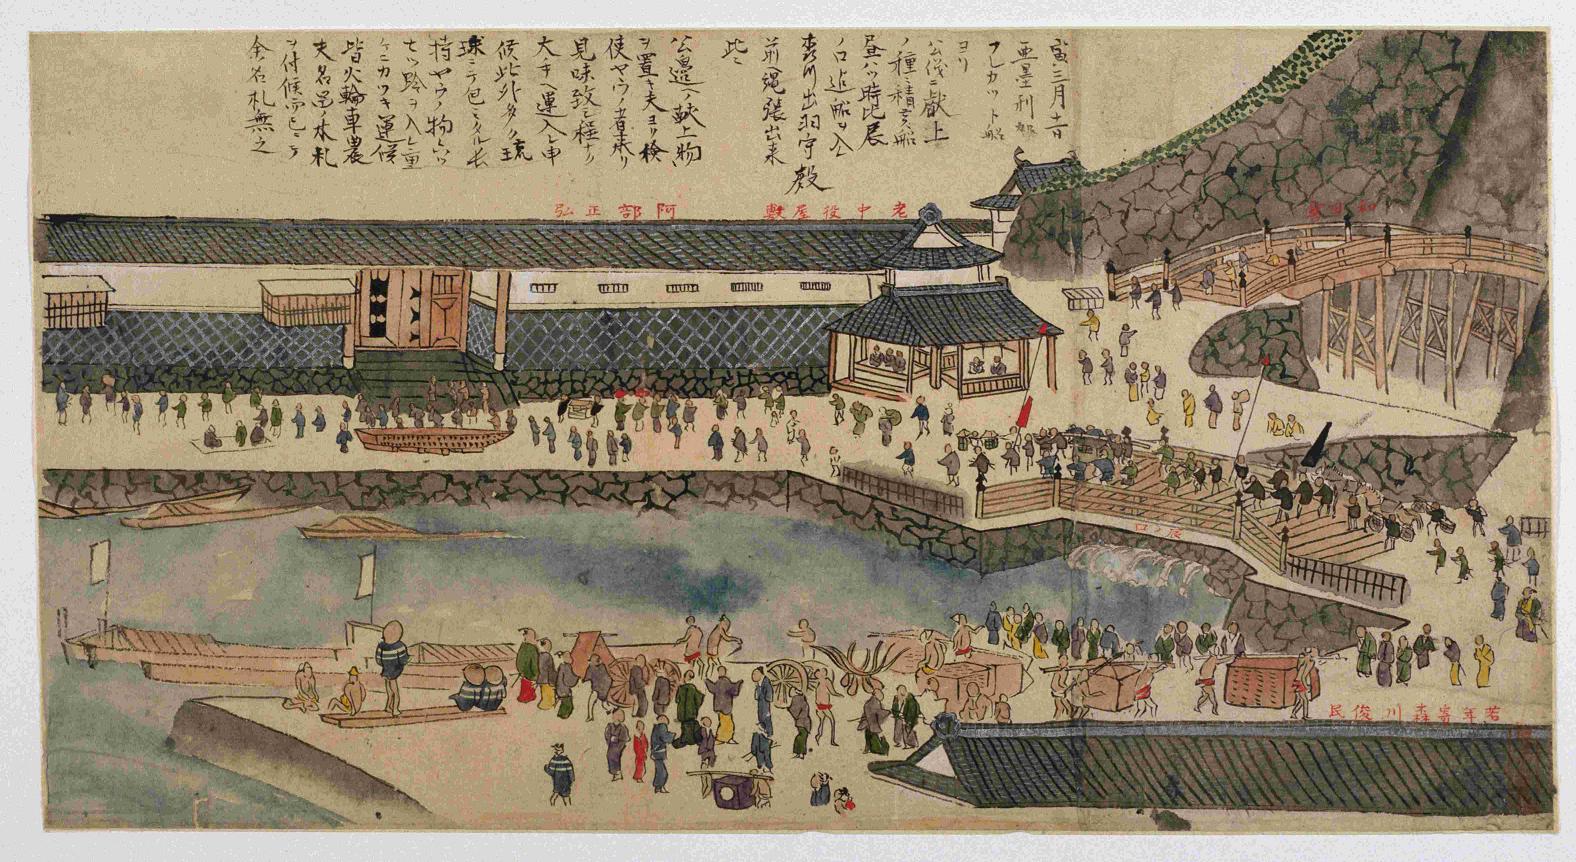 寅三月十一日
亜墨利加
フレカット船
ヨリ
公儀ニ献上
ノ種々積立船
昼八ツ時比辰
ノ口迄船ヲ入
森川出羽守殿
前縄張出来
此ニ
公邊ヘ献上物
ヲ置キ夫ヨリ検
使ヤウノ者来リ
見味致シ程ナク
大手ヘ運入レ申
候此外
球ニテ包ミタル長
持ヤウノ物六ツ
七ツ
ケニカツキ運候
皆火輪車農
夫名
ヲ付候而已ニテ
札無之
和田倉
老中役屋敷
阿部正弘
辰ノ口
若年寄森川俊民